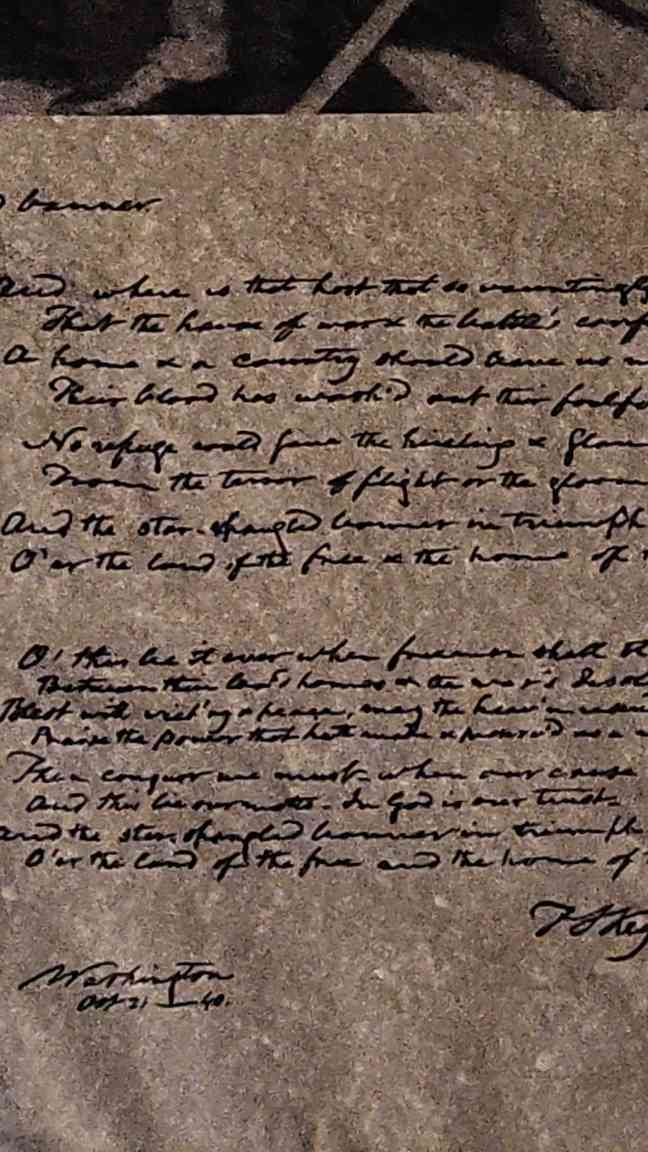 banner
And where is that host that so vauntingly
That the havoc of war & the battle's conf
A home & a country should leave us n
Their blood has wash'd out their foul fo
No refuge could save the hireling & slave
From the terror of flight or the gloom
And the star-spangled banner in triumph
O'er the land of the free & the home of
O! thus be it ever when freemen shall st
Between their lov'd homes & the war's desol
Blest with vict'ry & peace, may the heav'n rescue
Praise the power that hath made & preserv'd us a n
Then conquer we must, when our cause
And this be our motto - In God is our trust
And the star-spangled banner in triumph
O'er the land of the free and the home of
F S Key
Washington
Oct 21 — 40.